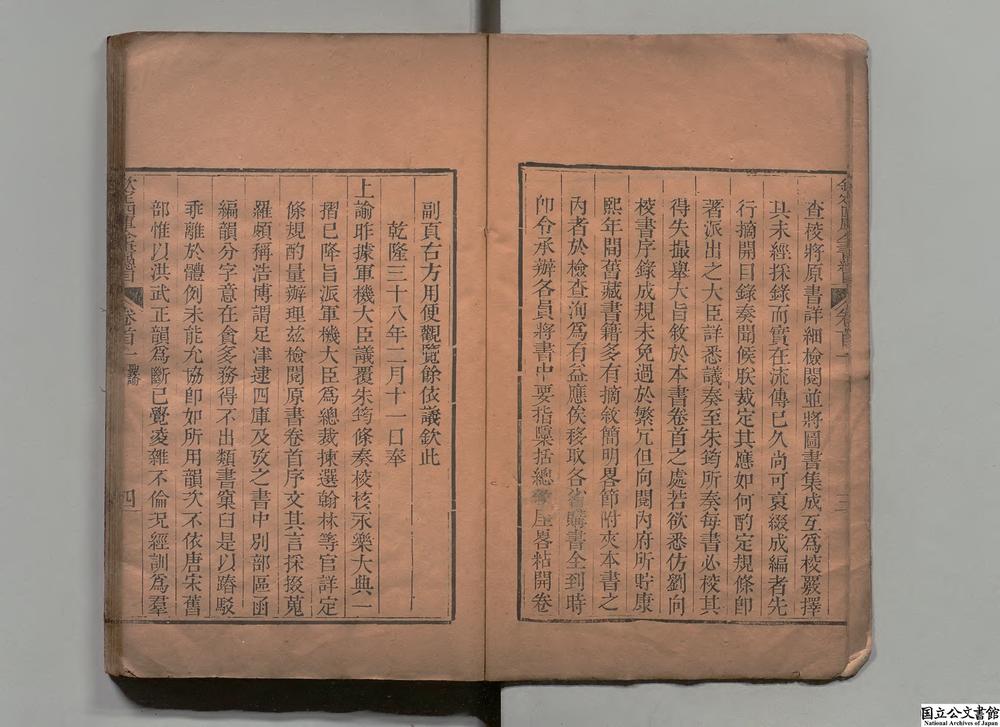 查校將原書詳細檢閱並將圖書集成互為校覈擇
其未經採錄而實在流傳已久尚可裒綴成編者先
行摘開目錄奏聞候朕裁定其應如何酌定規條即
著派出之大臣詳悉議奏至朱筠所奏每書必校其
得失撮舉大旨敘於本書卷首之處若欲悉仿劉向
校書序錄成規未免過於繁冗但向閱內府所貯康
熙年間舊藏書籍多有摘敘簡明畧節附夾本書之
內者於檢查洵為有益應俟移取各省購書全到時
即令承辦各員將書中要指檃括總敘厓畧粘開卷
三
副頁右方用便觀覽餘依議欽此
乾隆三十八年二月十一日奉
上諭昨據軍機大臣議覆朱筠條奏校核永樂大典一
摺已降旨派軍機大臣為總裁揀選翰林等官詳定
條規酌量辦理茲檢閱原書卷首序文其言採掇蒐
羅頗稱浩博謂足津逮四庫及攷之書中別部區函
編韻分字意在貪多務得不出類書窠臼是以踳駁
乖離於體例未能允協即如所用韻次不依唐宋舊
部惟以洪武正韻為斷已覺凌雜不倫況經訓為羣
卷首一
聖諭
四
国立公文書館
National Archives of Japan